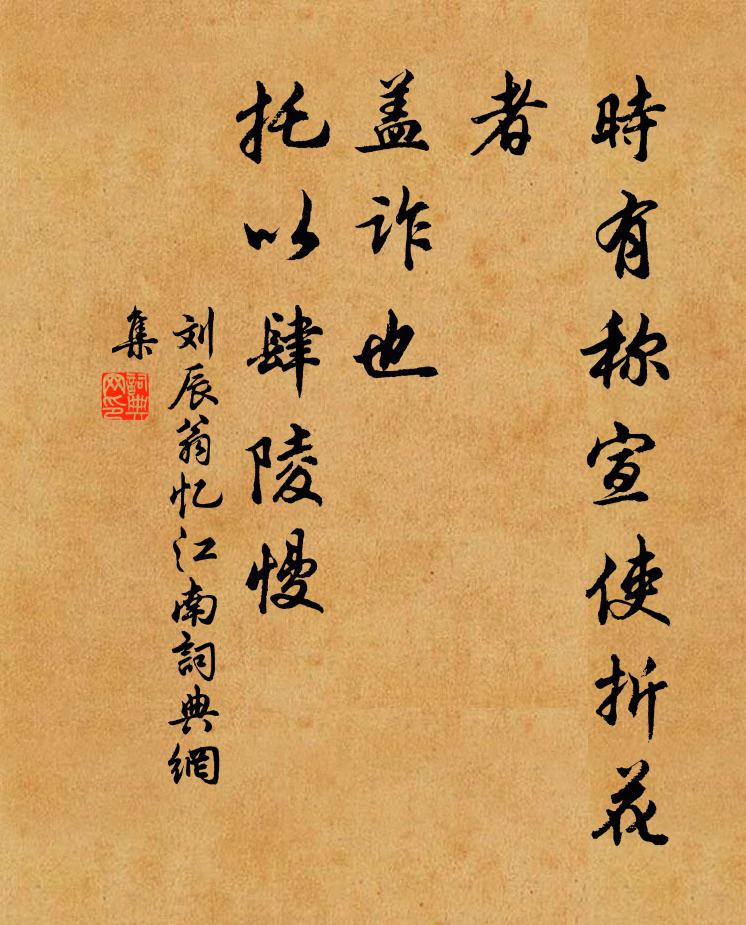 時有称宣使折花
者
盖诈也
托以肆陵慢
刘辰翁忆江南詞典網
集
詞典
网印